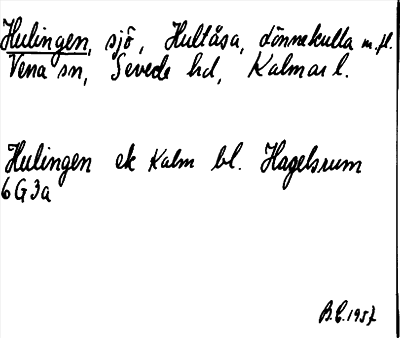 Hulingen, sjö, Hultåsa, Lönnekulla m.fl.
Vena sn, Sevede hd, Kalmar l.
Hulingen ek Kalm bl. Hagelsrum
6G3a
B.E. 1957